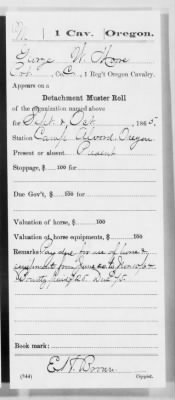 1 Cav. Oregon.
George W.
Co. C, 1 Reg't Oregon Cavalry.
Appears on a
Detachment Muster Roll
of the organization named above
for Sept & Oct, 1865.
Station Camp Alvord, Oregon
Present or absent Present
Stoppage, $ 100 for
Due Gov't, $ 100 for
Valuation of horse, $ 100
Valuation of horse equipments, $ 100
Remarks: Pay due for use of horse &
equipments from
Book mark:
E. H. Brown
(544) Copyist.